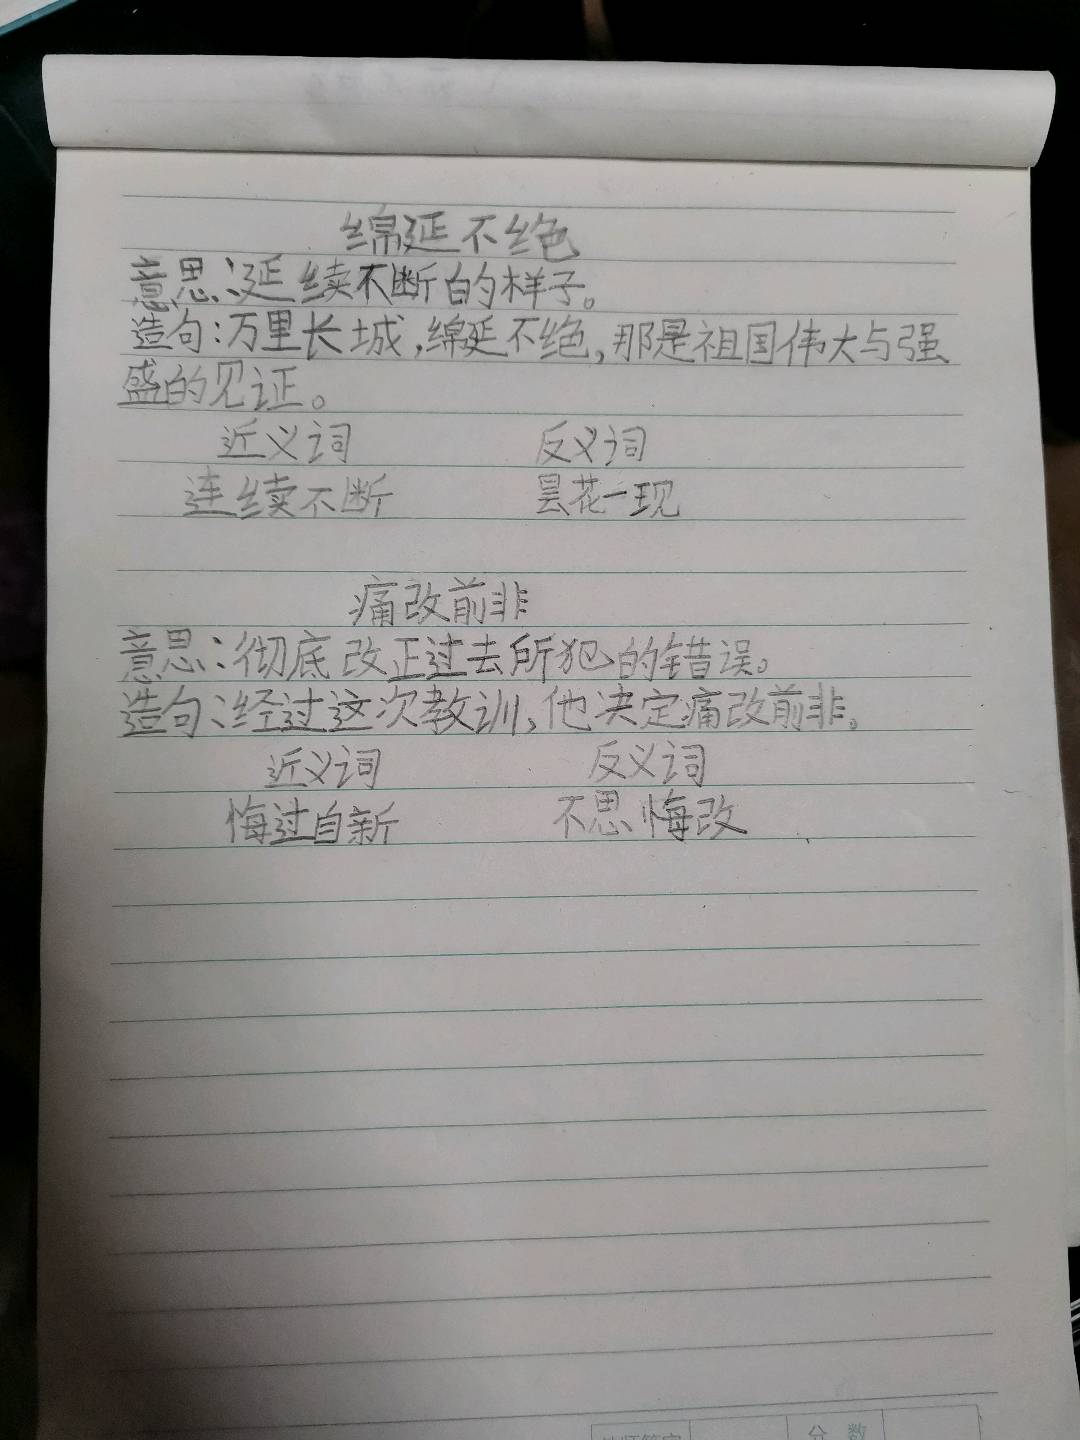 绵延不绝
意思:延续不断的样子。
造句:万里长城,绵延不绝,那是祖国伟大与强
盛的见证。
近义词 反义词
连续不断 昙花一现
痛改前非
意思:彻底改正过去所犯的错误。
造句:经过这次教训,他决定痛改前非。
近义词 反义词
悔过自新 不思悔改
分 数